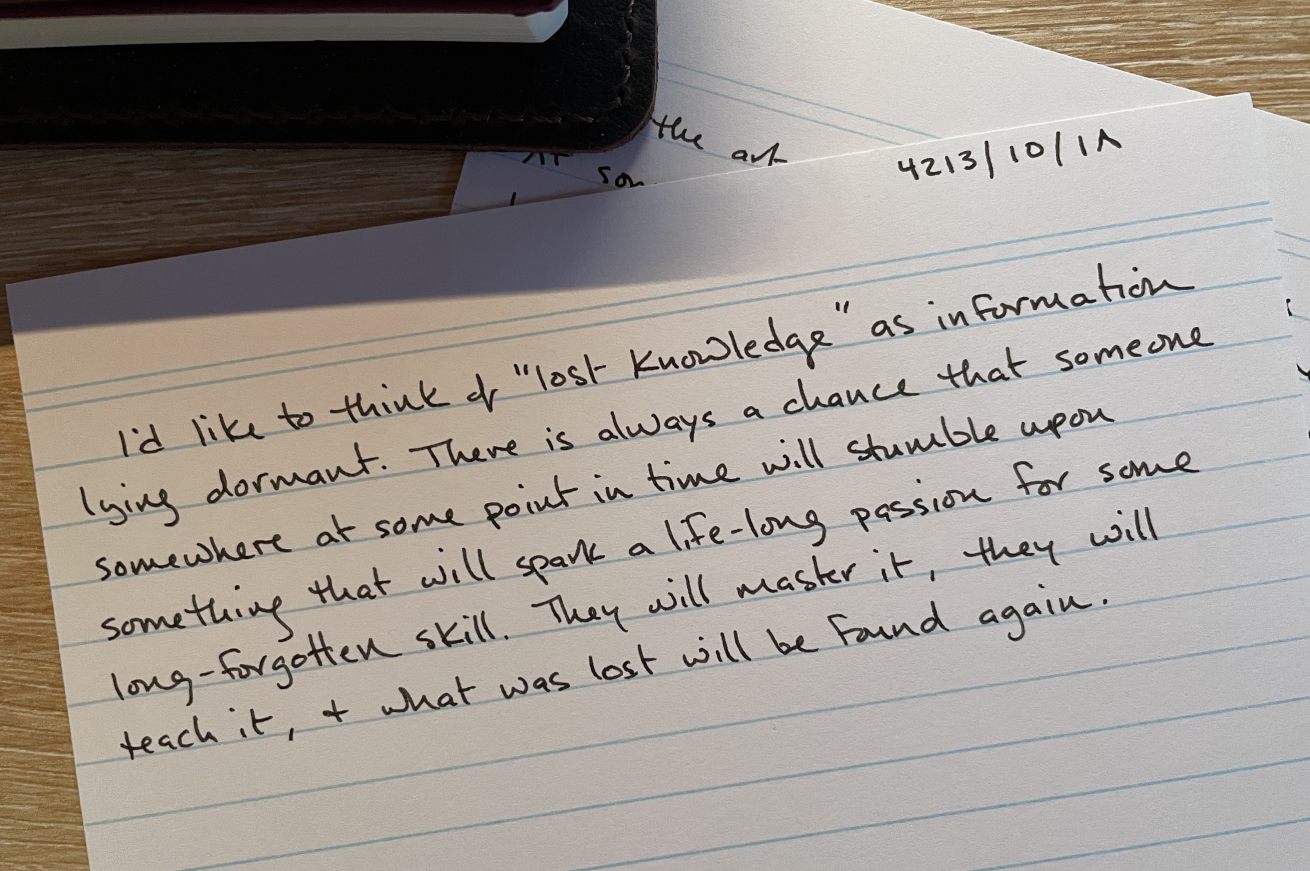 the art
son
4213/10/1A
I'd like to think of "lost knowledge" as information
lying dormant. There is always a chance that someone
somewhere at some point in time will stumble upon
something that will spark a life-long passion for some
long-forgotten skill. They will master it, they will
teach it, + what was lost will be found again.